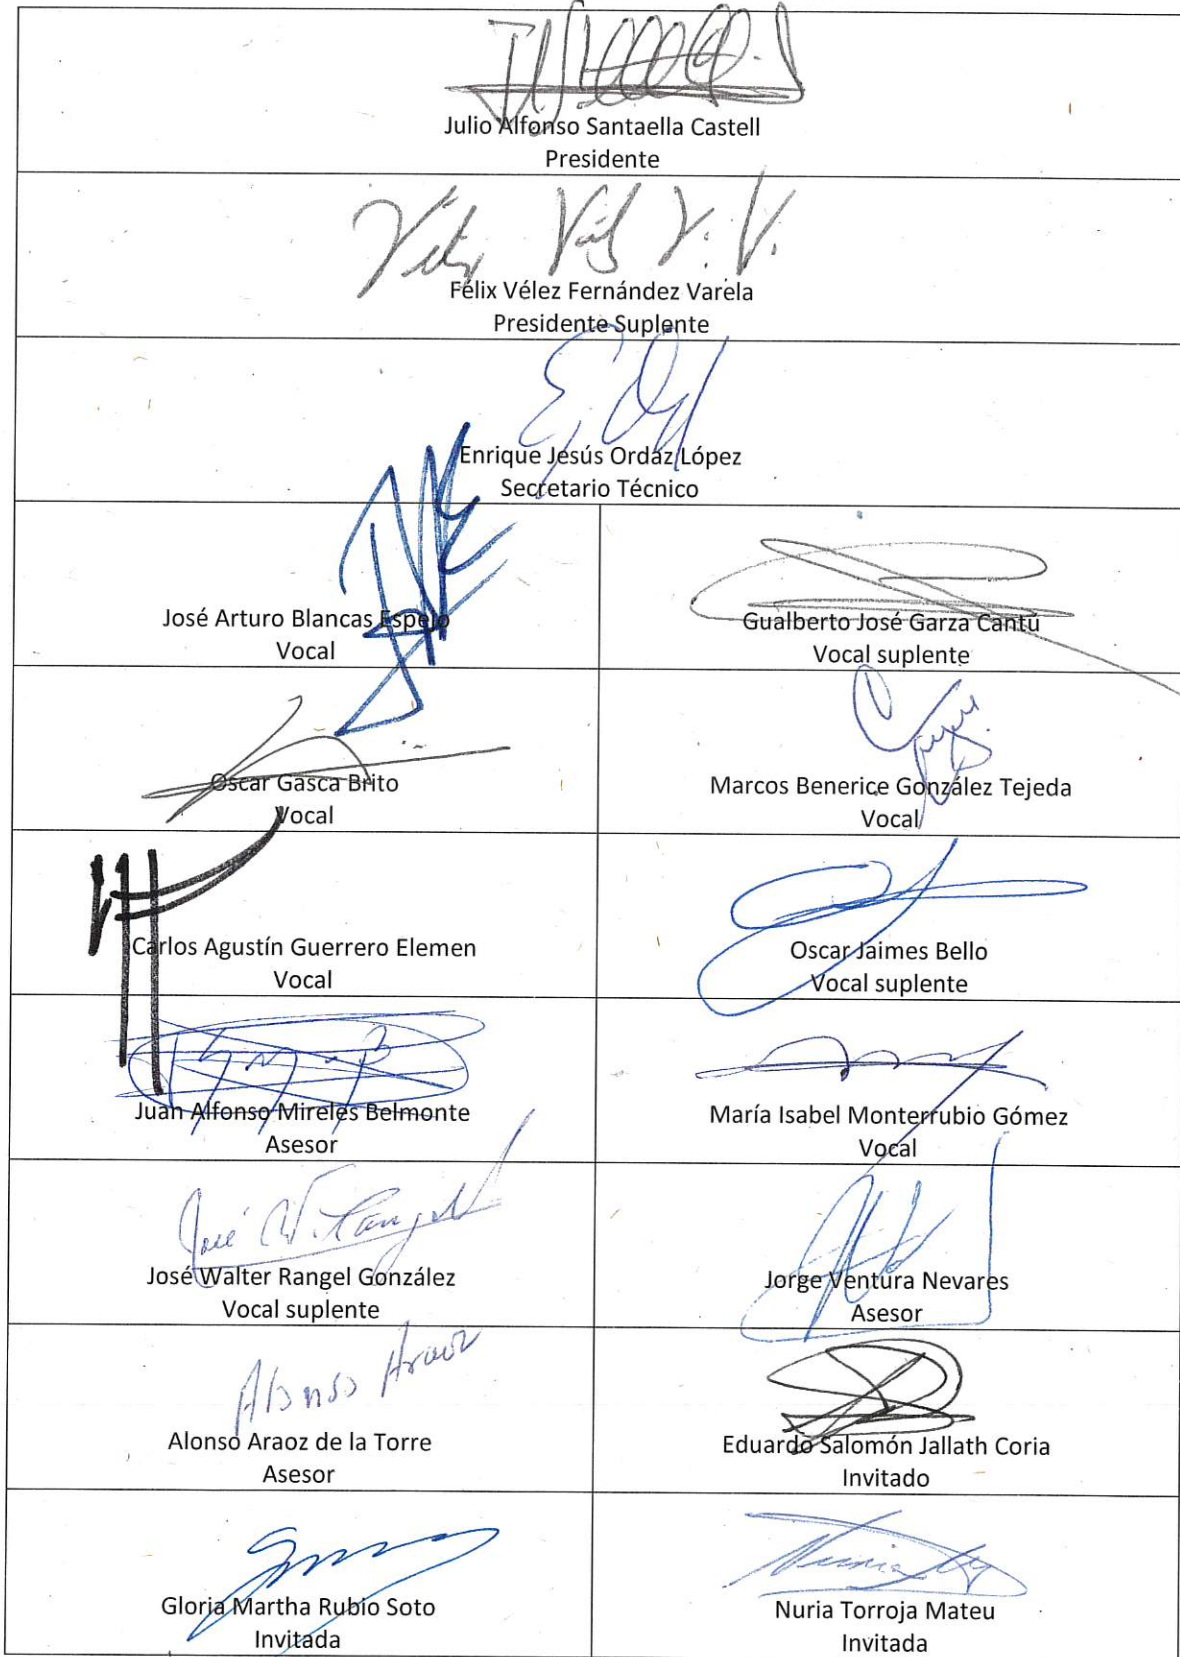 Julio Alfonso Santaella Castell
Presidente
Félix Vélez Fernández Varela
Presidente Suplente
Enrique Jesús Ordaz López
Secretario Técnico
José Arturo Blancas Espejo
Vocal
Gualberto José Garza Cantú
Vocal suplente
Oscar Gasca Brito
Vocal
Marcos Benerice González Tejeda
Vocal
Carlos Agustín Guerrero Elemen
Vocal
Oscar Jaimes Bello
Vocal suplente
Juan Alfonso Mireles Belmonte
Asesor
María Isabel Monterrubio Gómez
Vocal
José W. Rangel
José Walter Rangel González
Vocal suplente
Jorge Ventura Nevares
Asesor
Alonso Araoz
Alonso Araoz de la Torre
Asesor
Eduardo Salomón Jallath Coria
Invitado
Gloria Martha Rubio Soto
Invitada
Nuria Torroja Mateu
Invitada